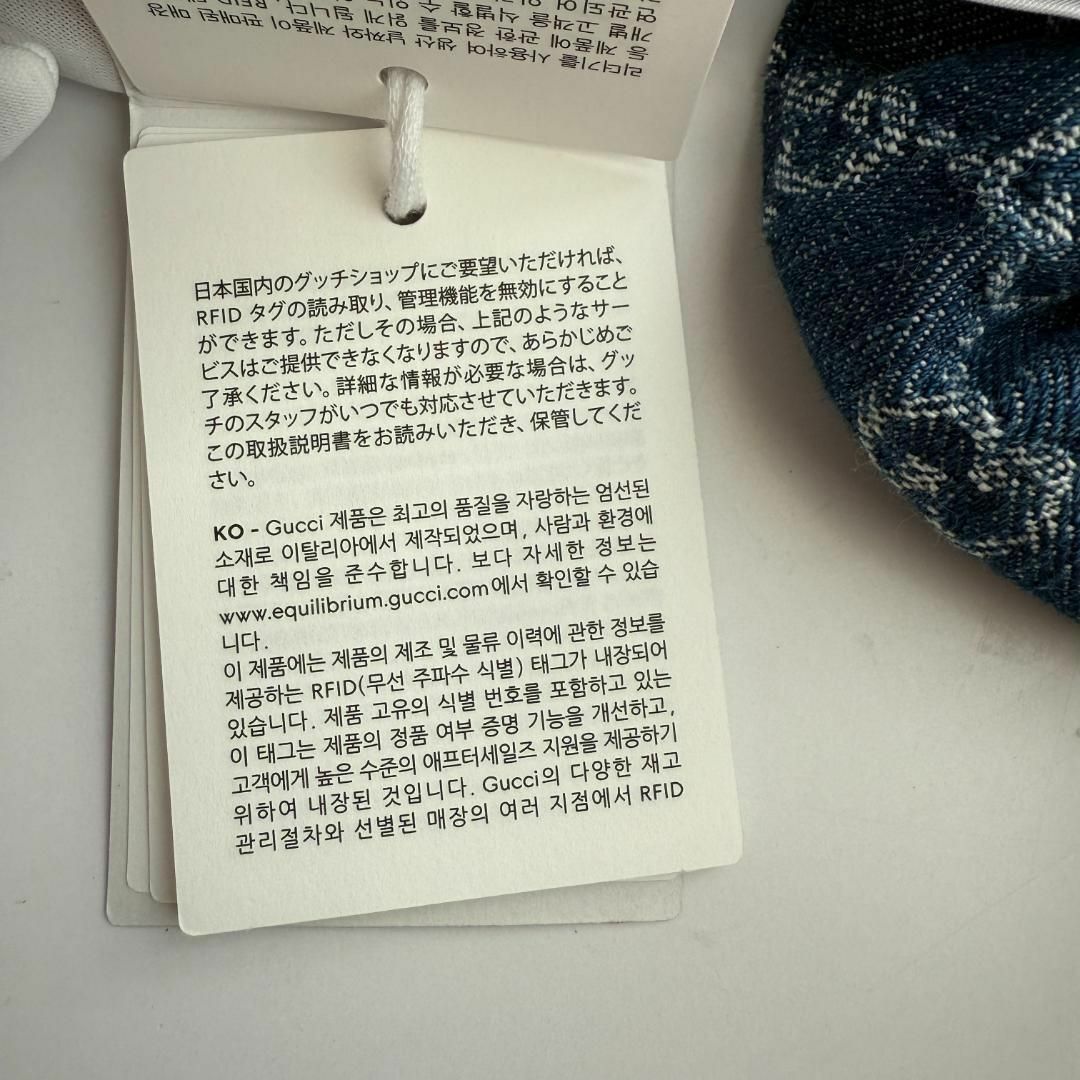 리더기를 사용하여 생산 날짜와 제품이 판매된 매장
등 제품에 관한 정보를
개별 고객을 식별할 수
日本国内のグッチショップにご要望いただければ、
RFID タグの読み取り、管理機能を無効にすること
ができます。ただしその場合、上記のようなサー
ビスはご提供できなくなりますので、あらかじめご
了承ください。詳細な情報が必要な場合は、グッ
チのスタッフがいつでも対応させていただきます。
この取扱説明書をお読みいただき、保管してくだ
さい。
KO - Gucci 제품은 최고의 품질을 자랑하는 엄선된
소재로 이탈리아에서 제작되었으며, 사람과 환경에
대한 책임을 준수합니다. 보다 자세한 정보는
www.equilibrium.gucci.com에서 확인할 수 있습
니다.
이 제품에는 제품의 제조 및 물류 이력에 관한 정보를
제공하는 RFID(무선 주파수 식별) 태그가 내장되어
있습니다. 제품 고유의 식별 번호를 포함하고 있는
이 태그는 제품의 정품 여부 증명 기능을 개선하고,
고객에게 높은 수준의 애프터세일즈 지원을 제공하기
위하여 내장된 것입니다. Gucci의 다양한 재고
관리절차와 선별된 매장의 여러 지점에서 RFID